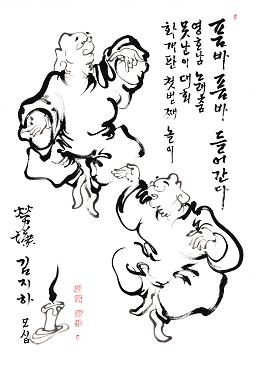 품바 품바 들어간다!
영호남 노래춤
못난이 대회
화개판 첫번째 놀이
김지하 모심